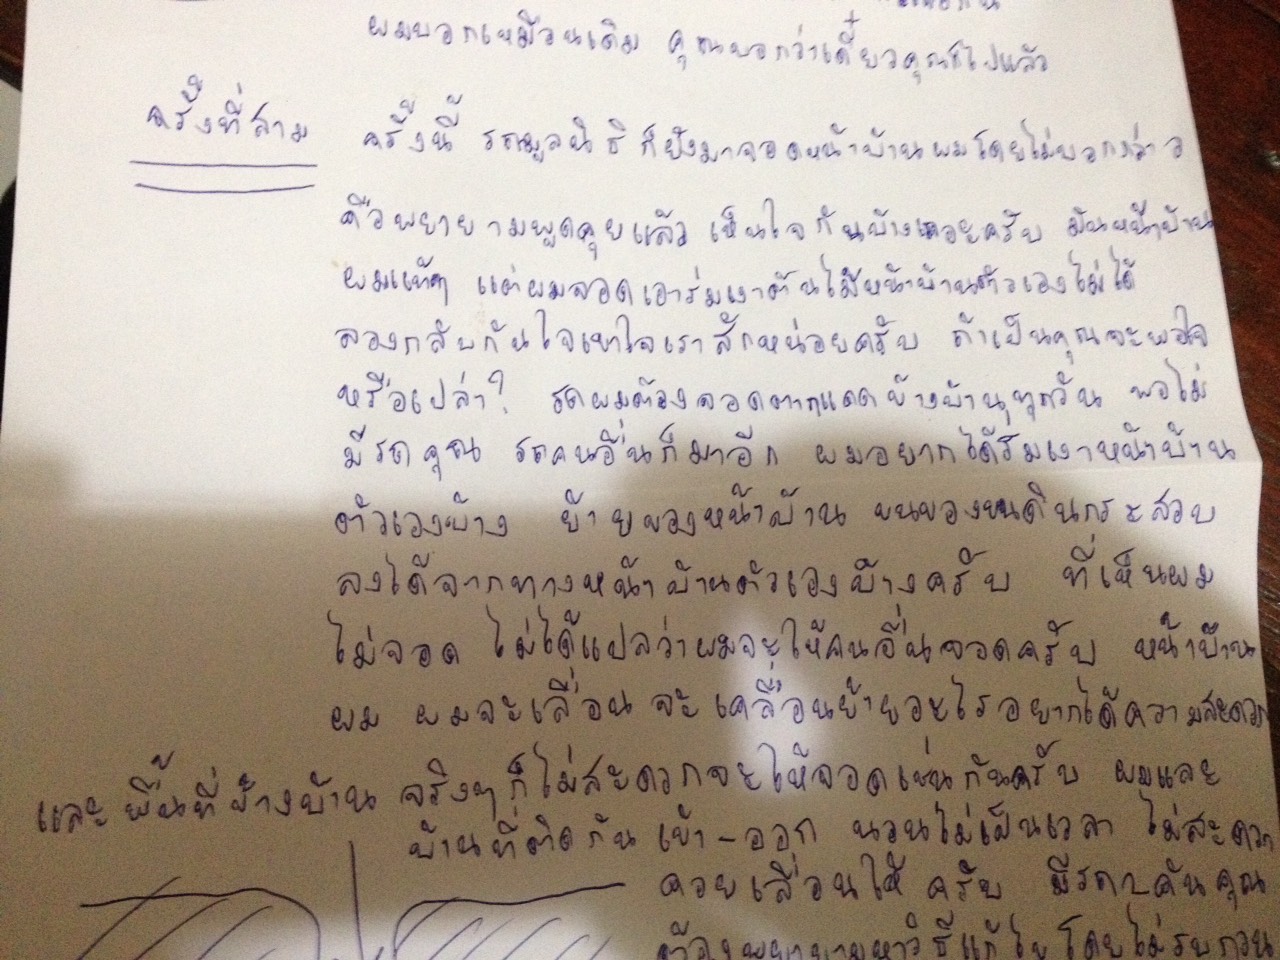 ผมบอกเหมือนเดิม คุณบอกว่าเดี๋ยวคุณก็ไปแล้ว
ครั้งที่สาม ครั้งนี้ รถมูลนิธิก็ยังมาจอดหน้าบ้านผมโดยไม่บอกกล่าว
คือพยายามพูดคุยแล้ว เห็นใจกันบ้างเถอะครับ มันหน้าบ้าน
ผมแท้ๆ แต่ผมจอดเอาร่มเงาต้นไม้หน้าบ้านตัวเองไม่ได้
ลองกลับกันใจเขาใจเราสักหน่อยครับ ถ้าเป็นคุณจะพอใจ
หรือเปล่า? รถผมต้องจอดตากแดดข้างบ้านทุกวัน พอไม่
มีรถคุณ รถคนอื่นก็มาอีก ผมอยากได้ร่มเงาหน้าบ้าน
ตัวเองบ้าง ย้ายของหน้าบ้าน ขนของขนดินกระสอบ
ลงได้จากทางหน้าบ้านตัวเองบ้างครับ ที่เห็นผม
ไม่จอด ไม่ได้แปลว่าผมจะให้คนอื่นจอดครับ หน้าบ้าน
ผม ผมจะเลื่อน จะเคลื่อนย้ายอะไรอยากได้ความสะดวก
และพื้นที่ข้างบ้าน จริงๆก็ไม่สะดวกจะให้จอดเช่นกันครับ ผมและ
บ้านที่ติดกัน เข้า-ออก นอนไม่เป็นเวลา ไม่สะดวก
คอยเลื่อนให้ ครับ มีรถ 2 คันคุณ
ต้องพยายามหาวิธีแก้ไขโดยไม่รบกวน